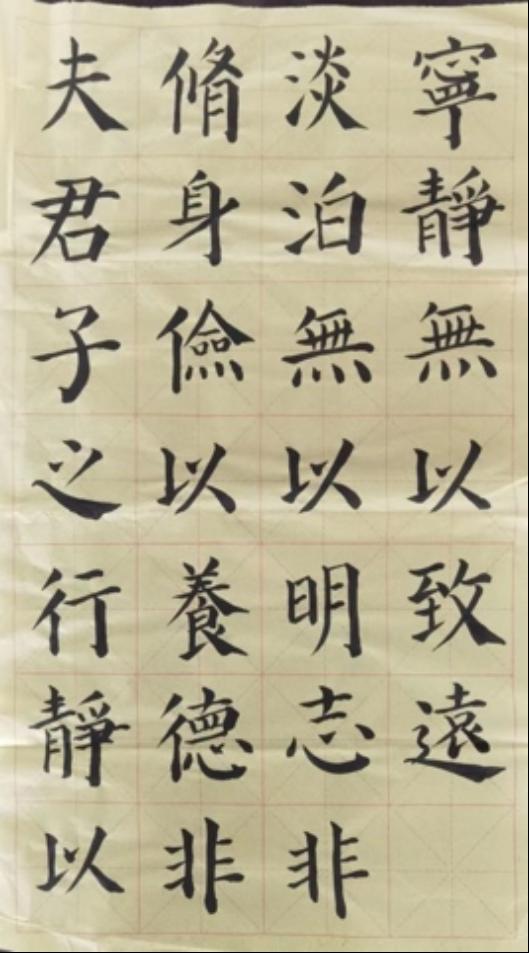 夫君子之行靜以
脩身儉以養德非
淡泊無以明志非
寧靜無以致遠